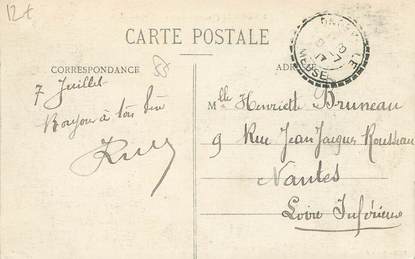 12€
CARTE POSTALE
CORRESPONDANCE
7 Juillet
Bonjour à ton
Melle Henriette Bruneau
9 Rue Jean Jacques Rousseau
Nantes
Loire Inférieure
MEUSE